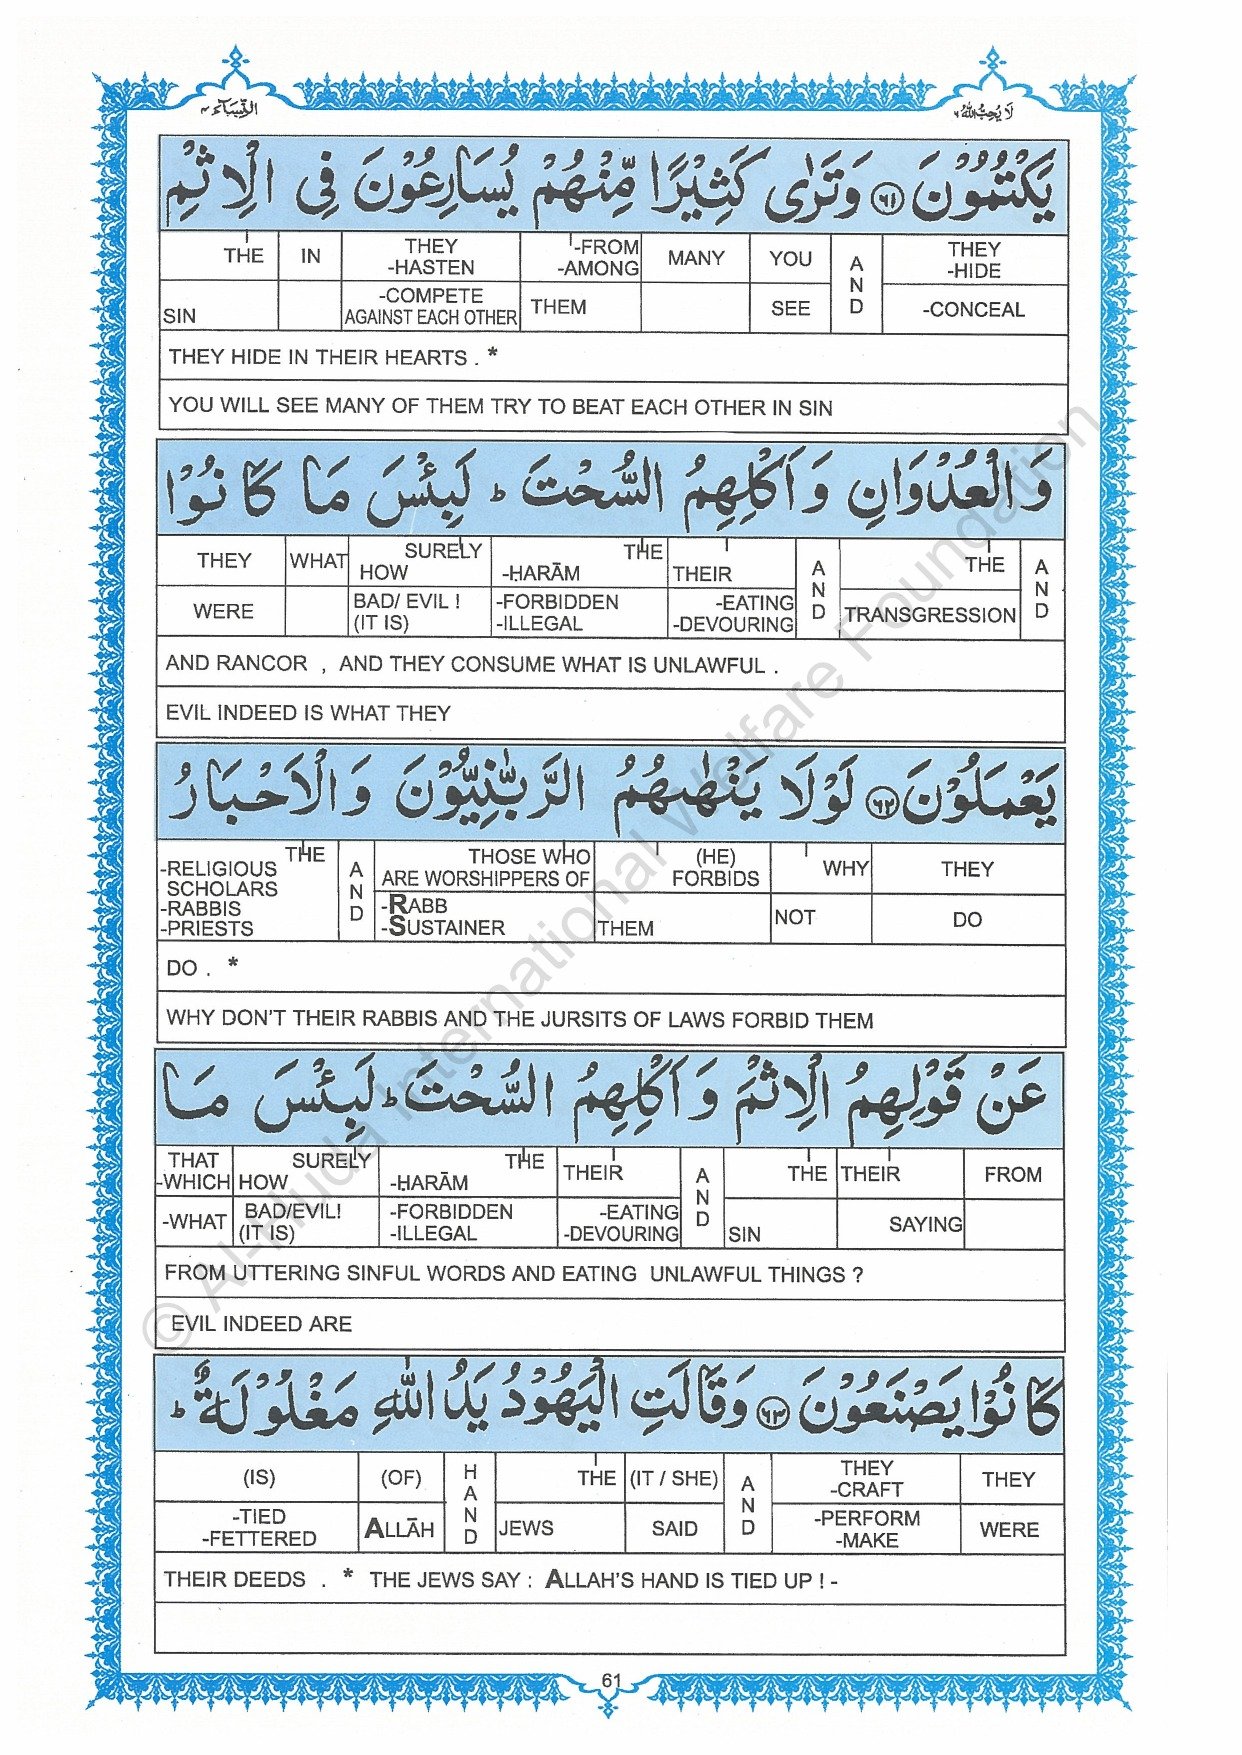 النِّسَآء ٤
لَا يُحِبُّ اللهُ ٦
يَكْتُمُوْنَ ﴿٦١﴾ وَتَرٰى كَثِيْرًا مِّنْهُمْ يُسَارِعُوْنَ فِى الْاِثْمِ
THE IN THEY -FROM MANY YOU A THEY
-HASTEN -AMONG N -HIDE
SIN -COMPETE THEM SEE D -CONCEAL
AGAINST EACH OTHER
THEY HIDE IN THEIR HEARTS . *
YOU WILL SEE MANY OF THEM TRY TO BEAT EACH OTHER IN SIN
وَالْعُدْوَانِ وَاَكْلِهِمُ السُّحْتَ ؕ لَبِئْسَ مَا كَانُوْا
THEY WHAT SURELY THE THEIR A THE A
HOW -ḤARĀM N N
WERE BAD/ EVIL ! -FORBIDDEN -EATING D TRANSGRESSION D
(IT IS) -ILLEGAL -DEVOURING
AND RANCOR , AND THEY CONSUME WHAT IS UNLAWFUL .
EVIL INDEED IS WHAT THEY
يَعْمَلُوْنَ ﴿٦٢﴾ لَوْلَا يَنْهٰىهُمُ الرَّبّٰنِيُّوْنَ وَالْاَحْبَارُ
THE A THOSE WHO (HE) WHY THEY
-RELIGIOUS N ARE WORSHIPPERS OF FORBIDS
SCHOLARS D -RABB THEM NOT DO
-RABBIS -SUSTAINER
-PRIESTS
DO . *
WHY DON'T THEIR RABBIS AND THE JURSITS OF LAWS FORBID THEM
عَنْ قَوْلِهِمُ الْاِثْمَ وَاَكْلِهِمُ السُّحْتَ ؕ لَبِئْسَ مَا
THAT SURELY THE THEIR A THE THEIR FROM
-WHICH HOW -ḤARĀM N
-WHAT BAD/EVIL! -FORBIDDEN -EATING D SIN SAYING
(IT IS) -ILLEGAL -DEVOURING
FROM UTTERING SINFUL WORDS AND EATING UNLAWFUL THINGS ?
EVIL INDEED ARE
كَانُوْا يَصْنَعُوْنَ ﴿٦٣﴾ وَقَالَتِ الْيَهُوْدُ يَدُ اللّٰهِ مَغْلُوْلَةٌ ؕ
(IS) (OF) H THE (IT / SHE) A THEY THEY
A N -CRAFT
-TIED ALLĀH N JEWS SAID D -PERFORM WERE
-FETTERED D -MAKE
THEIR DEEDS . * THE JEWS SAY : ALLAH'S HAND IS TIED UP ! -
61
© Al-Huda International Welfare Foundation